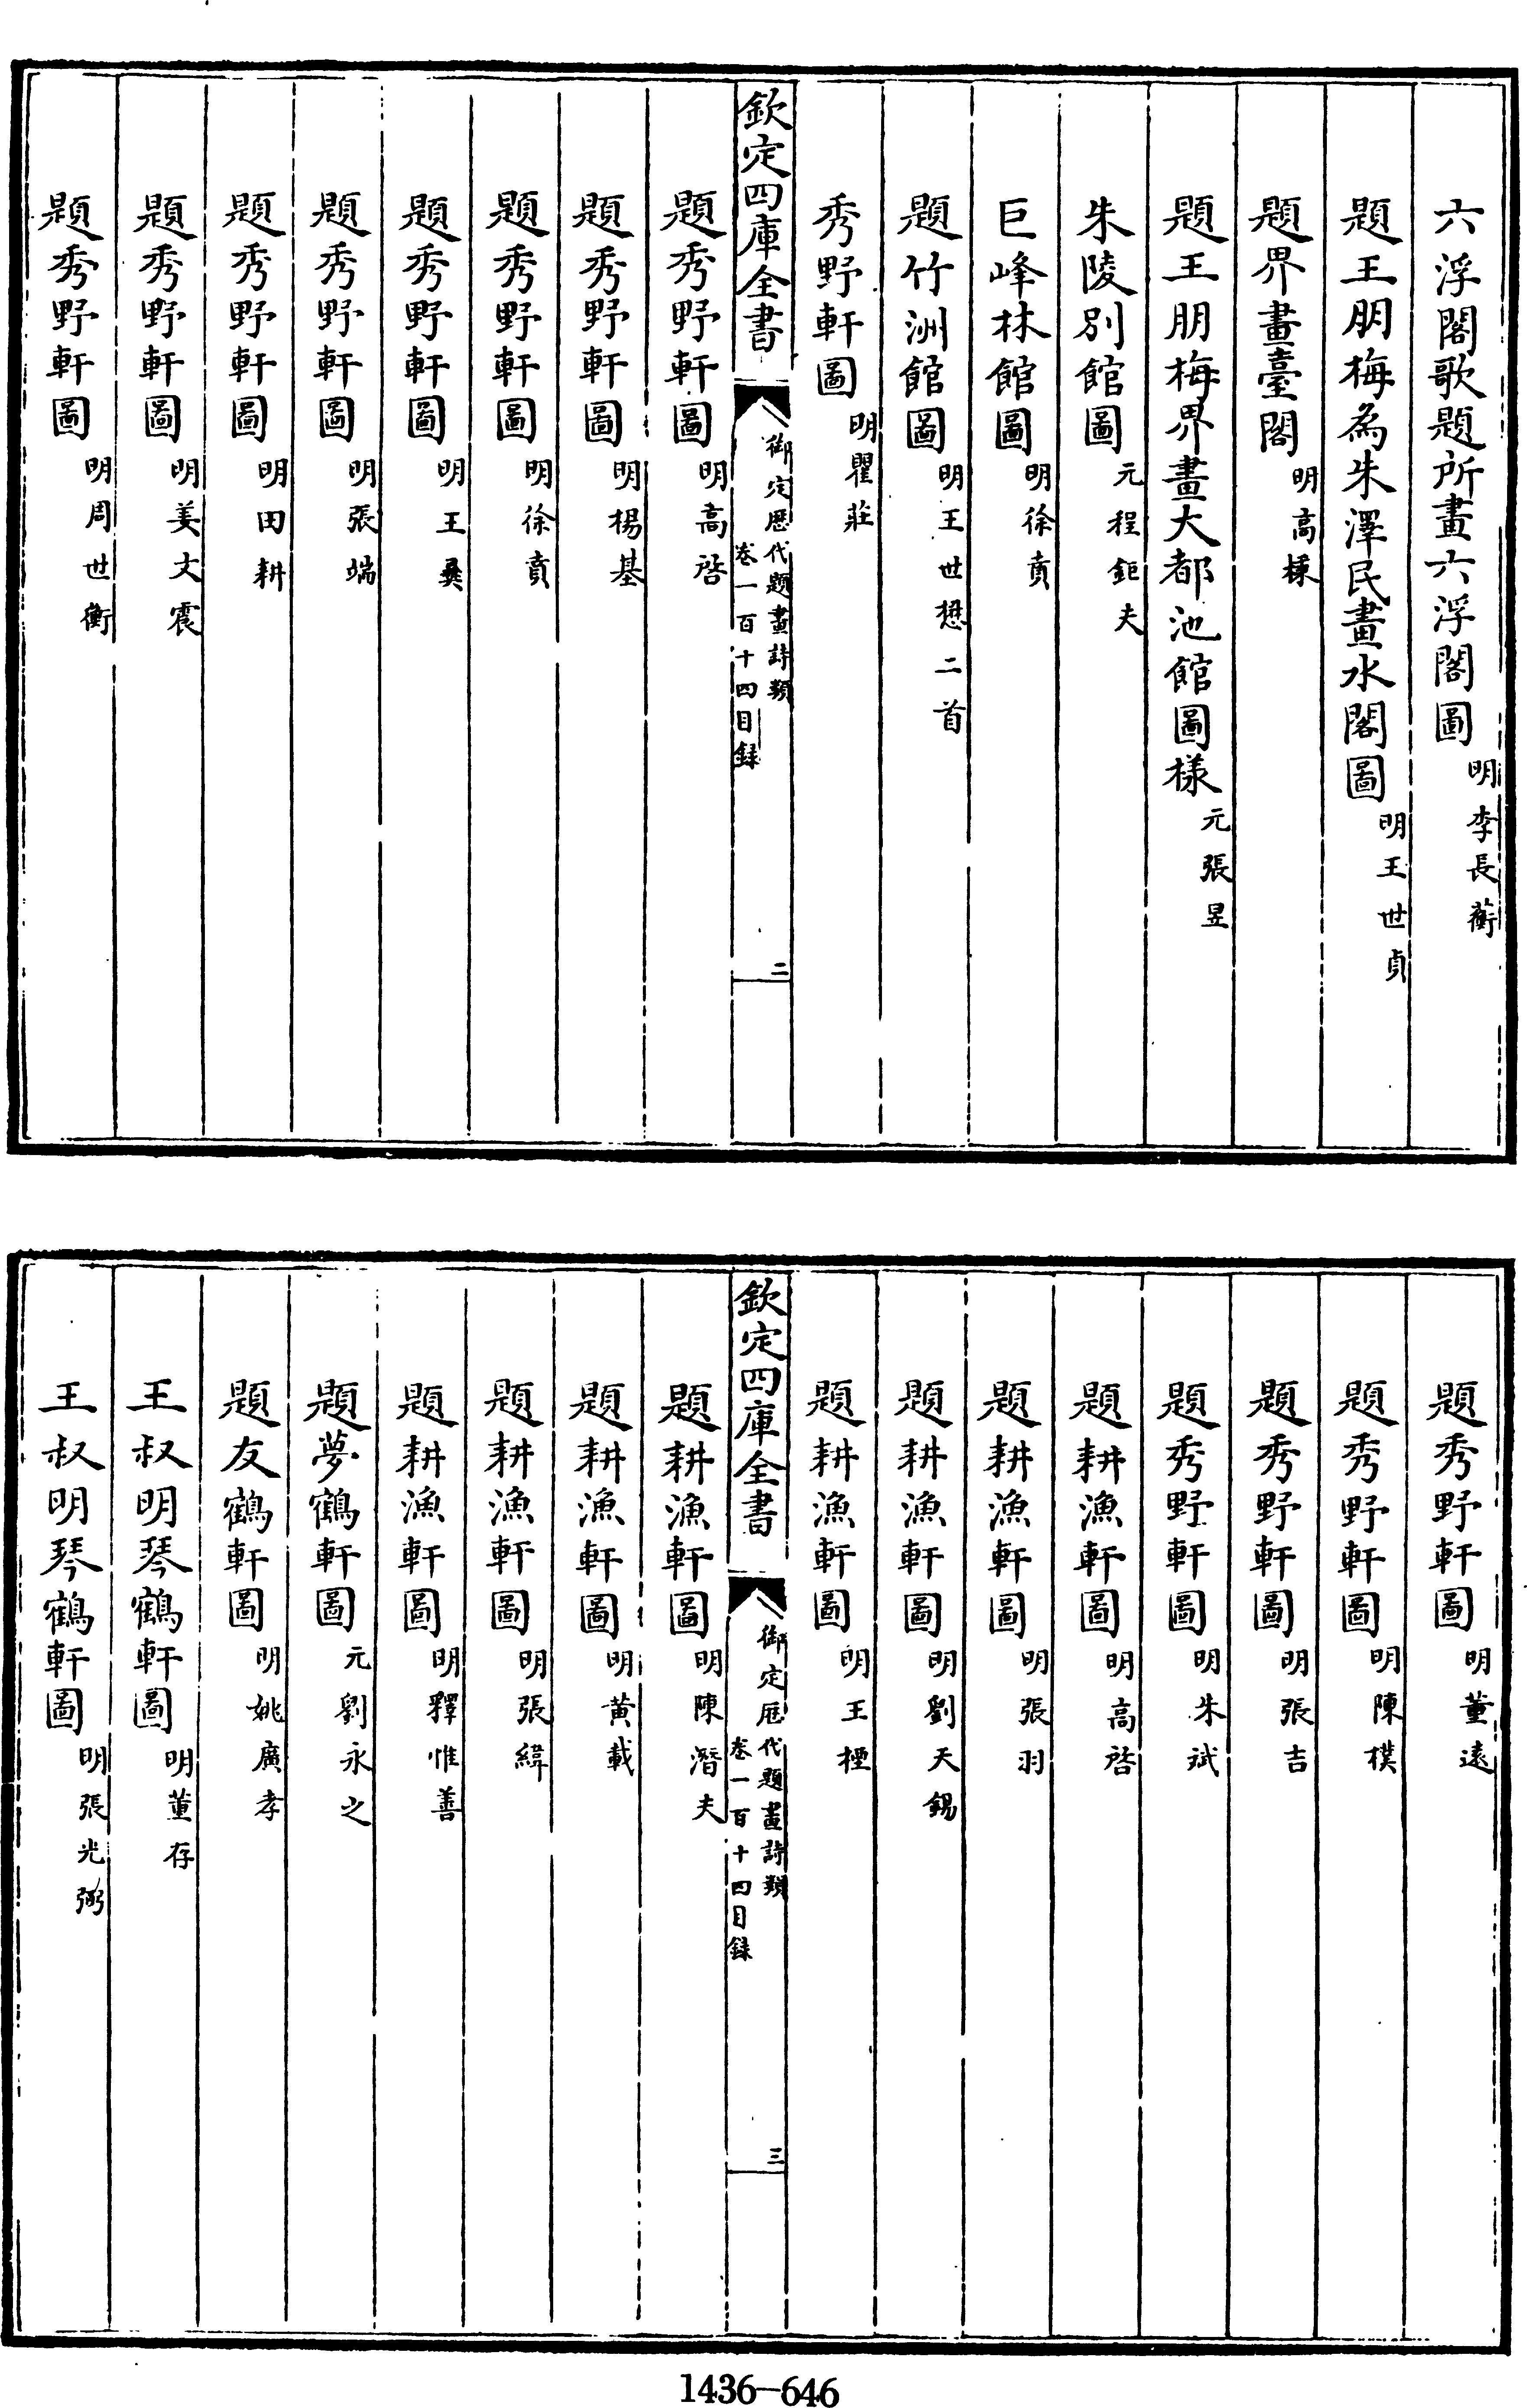 六浮閣歌題所畫六浮閣圖 明李長蘅
題王朋梅為朱澤民畫水閣圖 明王世貞
題界畫臺閣 明高棅
題王朋梅界畫大都池館圖樣 元張昱
朱陵別館圖 元程鉅夫
巨峰林館圖 明徐賁
題竹洲館圖 明王世懋二首
秀野軒圖 明瞿莊
欽定四庫全書 御定歴代題畫詩類 卷一百十四目録 二
題秀野軒圖 明高啓
題秀野軒圖 明楊基
題秀野軒圖 明徐賁
題秀野軒圖 明王彝
題秀野軒圖 明張端
題秀野軒圖 明田耕
題秀野軒圖 明姜文震
題秀野軒圖 明周世衡
題秀野軒圖 明董遠
題秀野軒圖 明陳樸
題秀野軒圖 明張吉
題秀野軒圖 明朱斌
題耕漁軒圖 明高啓
題耕漁軒圖 明張羽
題耕漁軒圖 明劉天錫
題耕漁軒圖 明王
欽定四庫全書 御定歴代題畫詩類 卷一百十四目録 三
題耕漁軒圖 明陳潛夫
題耕漁軒圖 明黃載
題耕漁軒圖 明張緯
題耕漁軒圖 明釋惟善
題夢鶴軒圖 元劉永之
題友鶴軒圖 明姚廣孝
王叔明琴鶴軒圖 明董存
王叔明琴鶴軒圖 明張光弼
1436-646